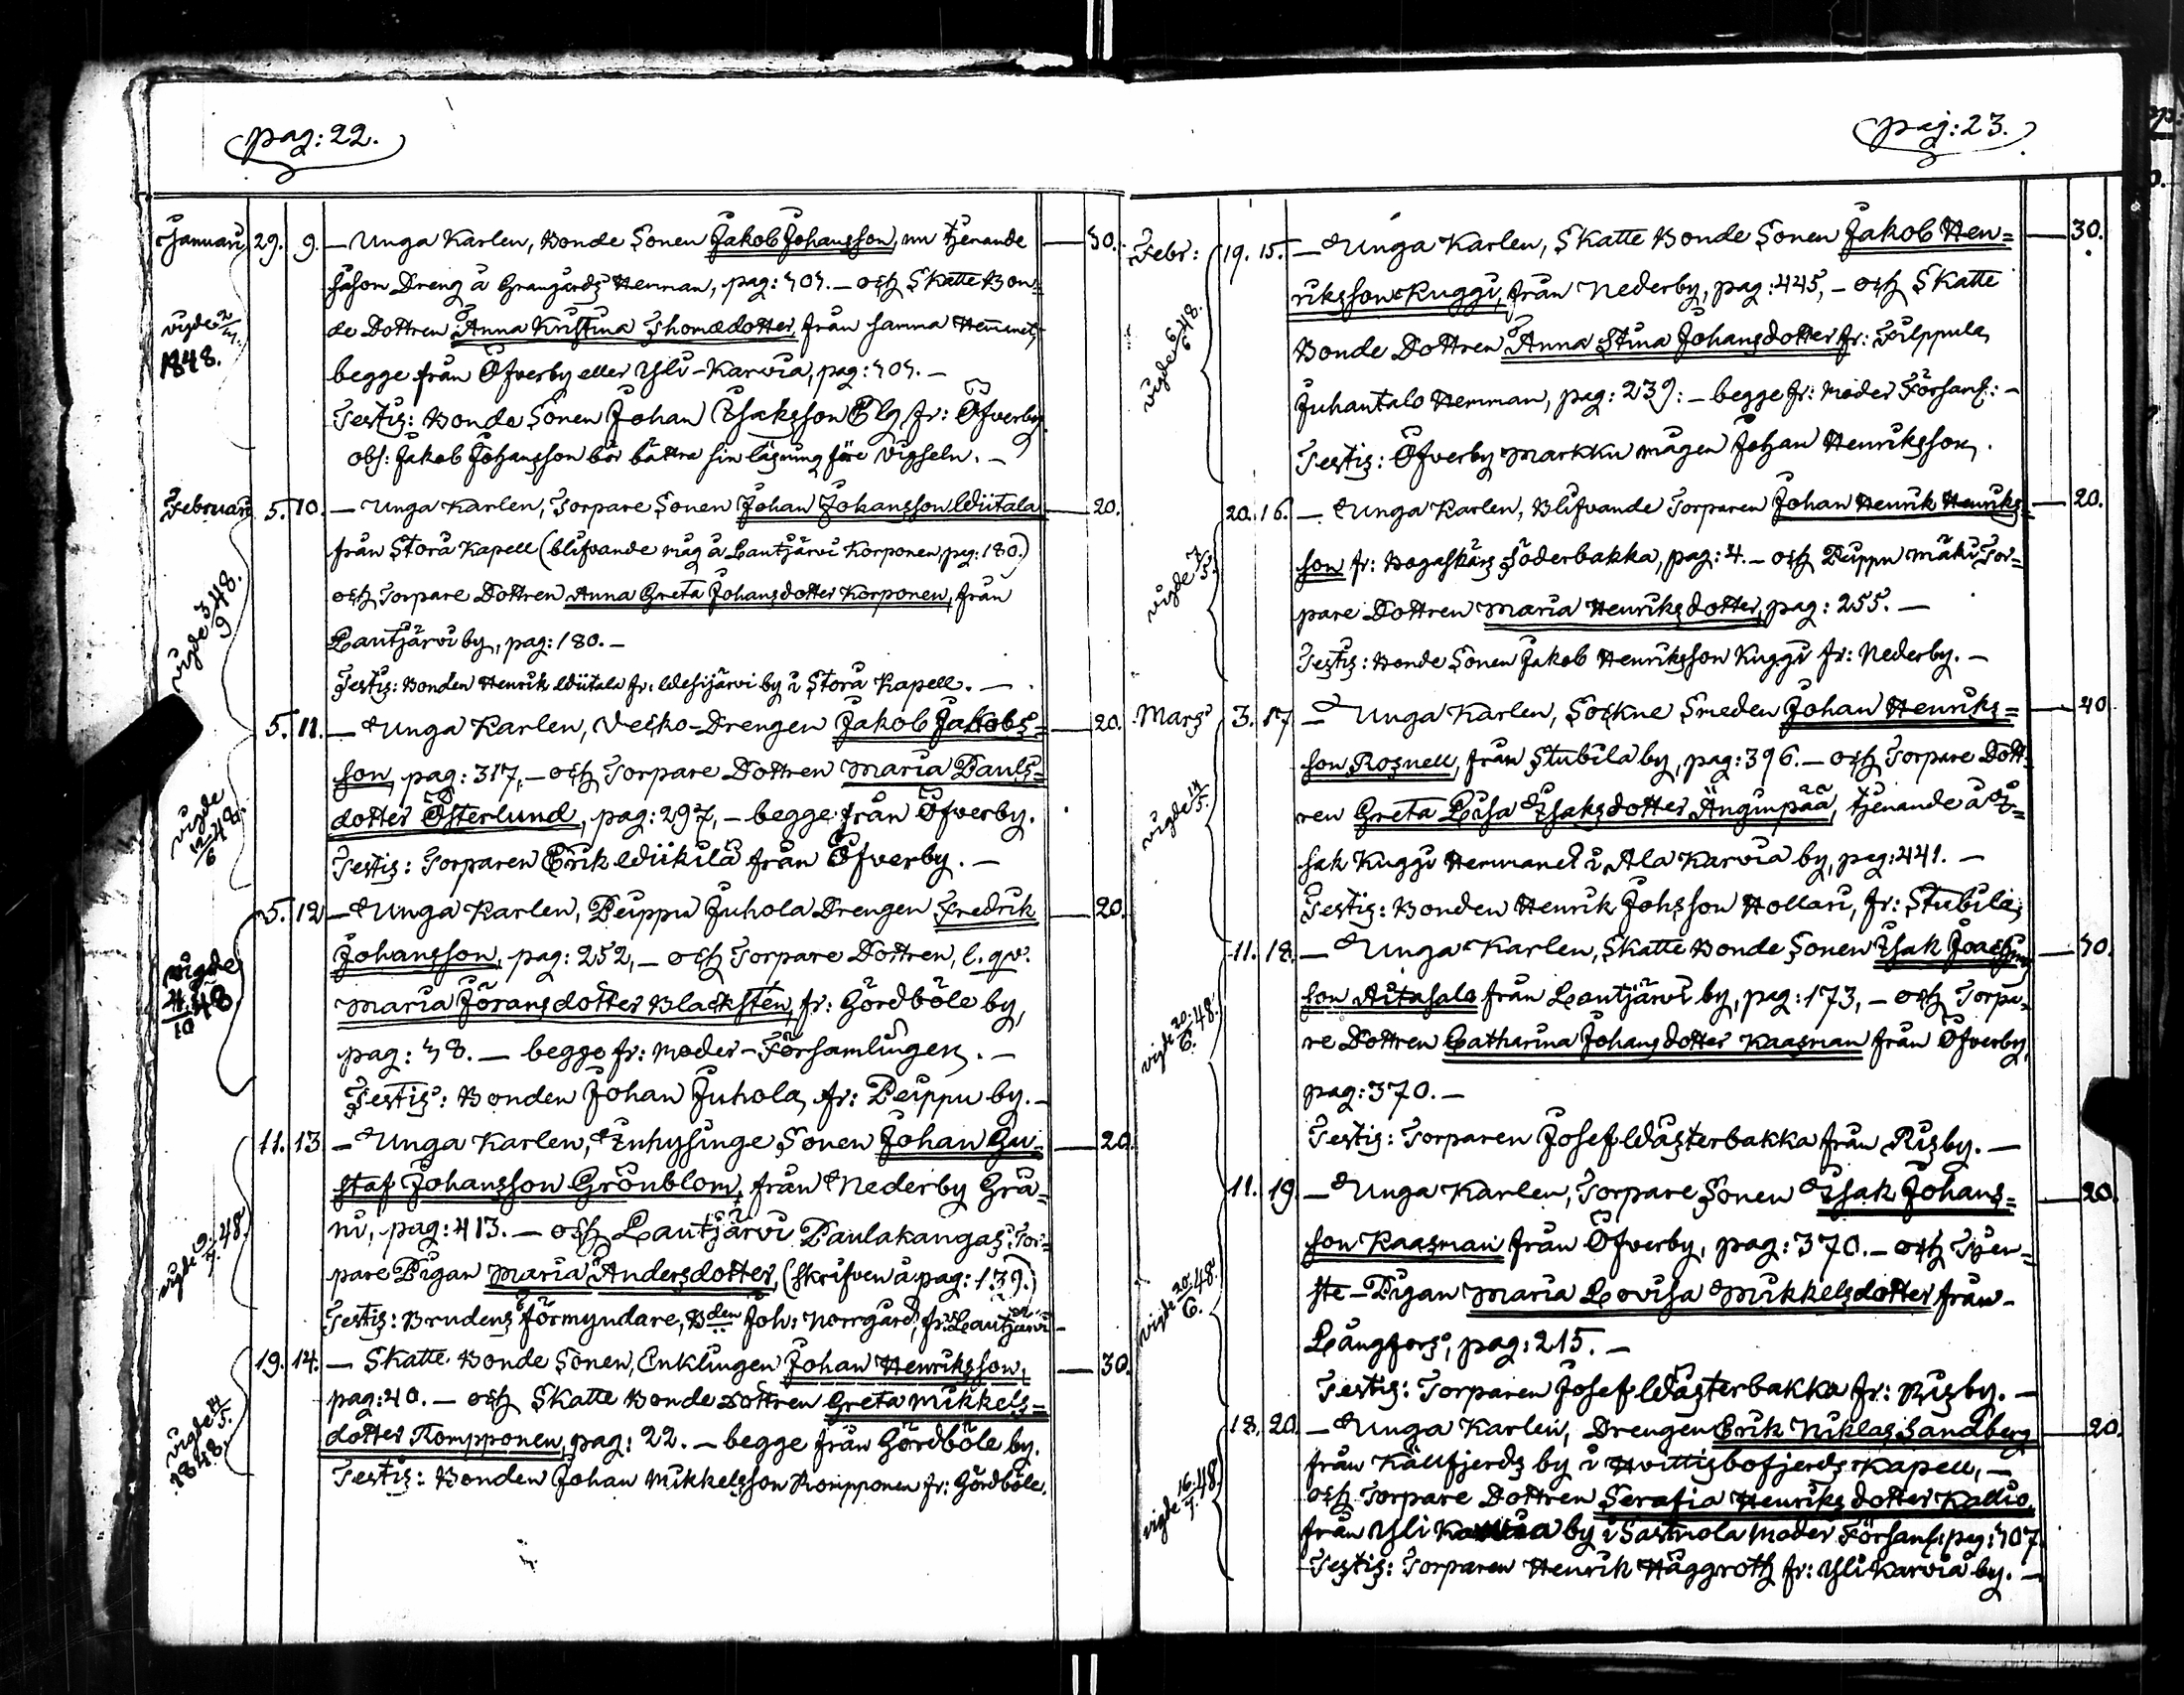 pag: 22.
Januari 29. 9. — Unga Karlen, Bonde Sonen Jakob Johansson, nu tjenande — 30.
såson Dreng å Grangårds Hemman, pag: 404. — och Skatte Bon=
de Dottren Anna Kristina Thomædotter, från samma Hemmet,
begge från Öfverby eller Yli-Karvia, pag: 404. —
Testis: Bonde Sonen Johan Isaksson Elg, fr: Öfverby
obs: Jakob Johansson bör bättra sin läsning före Vigseln. —
vigde 2/4. 1848.
Februari 5. 10. — Unga Karlen, Torpare Sonen Johan Johansson Wiitala — 20.
från Storå Kapell (blifvande måg å Lautjärvi Korponen, pag: 180.)
och Torpare Dottren Anna Greta Johansdotter Korponen, från
Lautjärvi by, pag: 180. —
Testis: Bonden Henrik Wiitala fr: Wesijärvi by i Storå Kapell. —
vigde 3/9 48.
5. 11. — Unga Karlen, Veiko-Drengen Jakob Jakobs= — 20.
son, pag: 317, — och Torpare Dottren Maria Pauls=
dotter Österlund, pag: 297, — begge från Öfverby.
Testis: Torparen Erik Wiikilä från Öfverby. —
vigde 12/6 48.
5. 12 — Unga Karlen, Peippu Juhola Drengen Fredrik — 20.
Johansson, pag: 252, — och Torpare Dottren, l. qv.
Maria Göransdotter Blacksten, fr: Gördböle by,
pag: 48. — begge fr: Moder-Församlingen. —
Testis: Bonden Johan Juhola, fr: Peippu by. —
vigde 4/10 48
11. 13 — Unga Karlen, Inhysinge Sonen Johan Gu= — 20.
staf Johansson Grönblom, från Nederby Grä=
ni, pag: 413. — och Lautjärvi Paulakangas Tor=
pare Pigan Maria Andersdotter, (skrifven å pag: 139.)
Testis: Brudens förmyndare, Bden Joh: Norrgård, fr: Lautjärvi —
vigde 9/7. 48.
19. 14. — Skatte Bonde Sonen, Enklingen Johan Henriksson, — 30.
pag: 40. — och Skatte Bonde Dottren Greta Mikkels=
dotter Romponen, pag: 22. — begge från Gördböle by.
Testis: Bonden Johan Mikkelsson Romponen fr: Gördböle.
vigde 14/5. 1848.
pag: 23.
Febr: 19. 15. — Unga Karlen, Skatte Bonde Sonen Jakob Hen= — 30.
riksson Kuggi, från Nederby, pag: 445, — och Skatte
Bonde Dottren Anna Stina Johansdotter fr: Filppula,
Juhantalo Hemman, pag: 239: — begge fr: Moder Församl: —
Testis: Öfverby Markku mågen Johan Henriksson.
vigde 6/6 48.
20. 16. — Unga Karlen, Blifvande Torparen Johan Henrik Henriks= — 20.
son fr: Bogaskärs Söderbakka, pag: 4. — och Peippu Mäki Tor=
pare Dottren Maria Henriksdotter, pag: 255. —
Testis: Bonde Sonen Jakob Henriksson Kuggi fr: Nederby. —
vigde 7/5.
Mars 3. 17 — Unga Karlen, Sockne Smeden Johan Henriks= — 40
son Rosnell, från Stubila by, pag: 396. — och Torpare Dott=
ren Greta Lisa Isaksdotter Änginpää, tjenande å I=
sak Kuggi Hemmanet i Ala Karvia by, pag: 441. —
Testis: Bonden Henrik Johsson Hollari, fr: Stubila,
vigde 14/5.
11. 18. — Unga Karlen, Skatte Bonde Sonen Isak Joachims — 30.
son Aitasalo från Lautjärvi by, pag: 173, — och Torpa=
re Dottren Catharina Johansdotter Kaasman från Öfverby,
pag: 370. —
Testis: Torparen Josef Wästerbakka från Risby. —
vigde 20/6. 48.
11. 19. — Unga Karlen, Torpare Sonen Isak Johans= — 20.
son Kaasman från Öfverby, pag: 370. — och Tjen=
ste-Pigan Maria Lovisa Mikkelsdotter från —
Långfors, pag: 215. —
Testis: Torparen Josef Wästerbakka fr: Risby. —
vigde 20/6. 48.
18. 20. — Unga Karlen, Drengen Erik Niklas Sandberg — 20.
från Källfjerds by i Hvittisbofjerds Kapell, —
och Torpare Dottren Serafia Henriks dotter Kallio,
från Yli Karvia by i Sastmola Moder Församl: pag: 407
Testis: Torparen Henrik Häggroth fr: Yli Karvia by. —
vigde 16/7. 48.